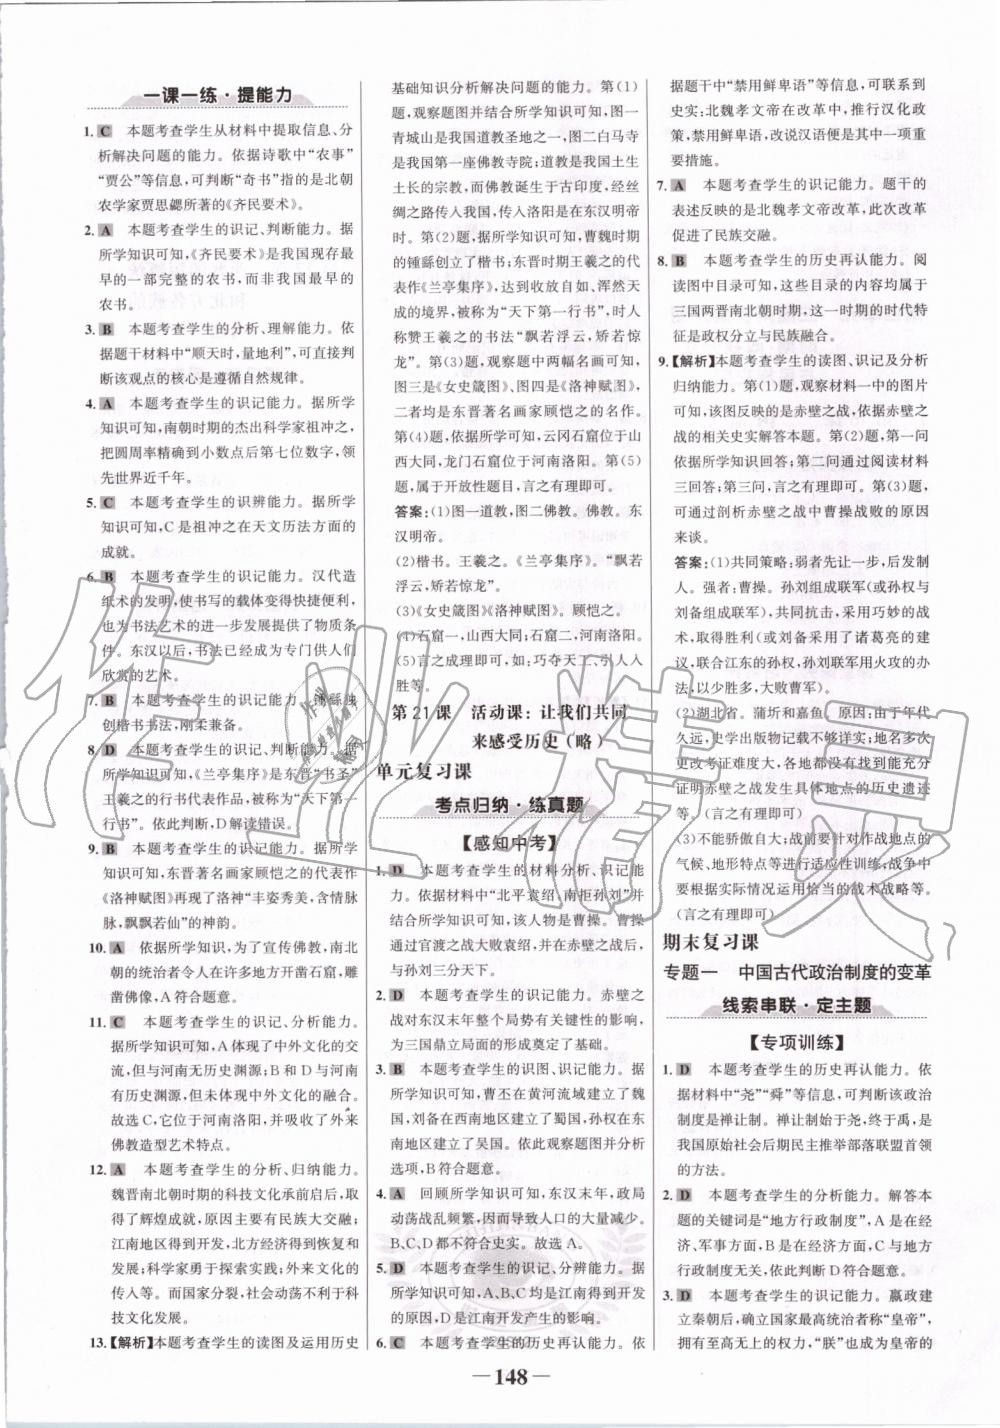 一课一练·提能力
1. C 本题考查学生从材料中提取信息、分
析解决问题的能力。依据诗歌中“农事”
“贾公”等信息,可判断“奇书”指的是北朝
农学家贾思勰所著的《齐民要术》。
2. A 本题考查学生的识记、判断能力。依
据所学知识可知,《齐民要术》是我国现存最
早的一部完整的农书,而非我国最早的
农书。
3. B 本题考查学生的分析、理解能力。依
据题干材料中“顺天时,量地利”,可直接判
断该观点的核心是遵循自然规律。
4. A 本题考查学生的识记能力。据所学
知识可知,南朝时期的杰出科学家祖冲之,
把圆周率精确到小数点后第七位数字,领
先世界近千年。
5. C 本题考查学生的识辨能力。据所学
知识可知,C是祖冲之在天文历法方面的
成就。
6. B 本题考查学生的识记能力。汉代造
纸术的发明,使书写的载体变得快捷便利,
也为书法艺术的进一步发展提供了物质条
件。东汉以后,书法已经成为专门供人们
欣赏的艺术。
7. B 本题考查学生的识记能力。锺繇独
创楷书书法,刚柔兼备。
8. D 本题考查学生的识记、判断能力。据
所学知识可知,《兰亭集序》是东晋“书圣”
王羲之的行书代表作品,被称为“天下第一
行书”。依此判断,D解读错误。
9. B 本题考查学生的识记能力。据所学
知识可知,东晋著名画家顾恺之的代表作
《洛神赋图》再现了洛神“丰姿秀美,含情脉
脉,飘飘若仙”的神韵。
10. A 依据所学知识,为了宣传佛教,南北
朝的统治者令人在许多地方开凿石窟,雕
凿佛像,A符合题意。
11. C 本题考查学生的识记、分析能力。
据所学知识可知,A体现了中外文化的交
流,却与河南无历史渊源;B和D与河南有
渊源,但未体现中外文化的融合。
故选C,它位于河南洛阳,并吸收了外来
佛教造型艺术特点。
12. A 本题考查学生的分析、归纳能力。
魏晋南北朝时期的科技文化承前启后,取
得了辉煌成就,原因主要有以下几点:
江南地区得到开发,北方经济得到恢复和
发展;科学家勇于探索实践;外来文化的
传入等。而国家分裂,社会动荡不利于科
技文化发展。
13.【解析】本题考查学生的读图及运用历史
基础知识分析解决问题的能力。第(1)
题,观察题图并结合所学知识可知,图一
青城山是我国道教圣地之一,图二白马寺
是我国第一座佛教寺院;道教是我国土生
土长的宗教,而佛教诞生于古印度,经丝
绸之路传入我国,传入洛阳是在东汉明帝
时。第(2)题,据所学知识可知,曹魏时期
的锺繇创立了楷书;东晋时期王羲之的代
表作《兰亭集序》,达到收放自如、浑然天
成的境界,被称为“天下第一行书”,时人
称赞王羲之的书法“飘若浮云,矫若惊
龙”。第(3)题,观察题中两幅名画可知,
图三是《女史箴图》,图四是《洛神赋图》,
二者均是东晋著名画家顾恺之的名作。
第(4)题,据所学知识可知,云冈石窟位于山
西大同,龙门石窟位于河南洛阳。第(5)
题,属于开放性题目,言之有理即可。
答案:(1)图一道教,图二佛教。佛教。东
汉明帝。
(2)楷书。王羲之。《兰亭集序》。“飘若
浮云,矫若惊龙”。
(3)《女史箴图》《洛神赋图》。顾恺之。
(4)石窟一,山西大同;石窟二,河南洛阳。
(5)言之成理即可,如:巧夺天工、引人入
胜等。
第21课 活动课:让我们共同
来感受历史(略)
单元复习课
考点归纳·练真题
【感知中考】
1. D 本题考查学生的材料分析、识记能
力。依据材料中“北平袁绍,南拒孙刘”并
结合所学知识可知,该人物是曹操。曹操
通过官渡之战大败袁绍,在赤壁之战后,
与孙刘三分天下。
2. D 本题考查学生的识记能力。赤壁之
战对东汉末年整个局势有关键性的影响,
为三国鼎立局面的形成奠定了基础。
3. B 本题考查学生的识图、识记能力。据
所学知识可知,曹丕在黄河流域建立了魏
国,刘备在西南地区建立了蜀国,孙权在东
南地区建立了吴国。依此观察题图并分析
选项,B符合题意。
4. A 回顾所学知识可知,东汉末年,政局
动荡战乱频繁,因而导致人口的大量减少。
B、C、D不符合史实。故选A。
5. D 本题考查学生的识记、分辨能力。据
所学知识可知,A、B、C均是江南得到开发
的原因,D是江南开发产生的影响。
6. C 本题考查学生的历史再认能力。依
据题干中“禁用鲜卑语”等信息,可联系到
史实:北魏孝文帝在改革中,推行汉化政
策,禁用鲜卑语,改说汉语便是其中一项重
要措施。
7. A 本题考查学生的识记能力。题干的
表述反映的是北魏孝文帝改革,此次改革
促进了民族交融。
8. B 本题考查学生的历史再认能力。阅
读图中目录可知,这些目录的内容均属于
三国两晋南北朝时期,这一时期的时代特
征是政权分立与民族融合。
9.【解析】本题考查学生的读图、识记及分析
归纳能力。第(1)题,观察材料一中的图片
可知,该图反映的是赤壁之战,依据赤壁之
战的相关史实解答本题。第(2)题,第一问
依据所学知识回答;第二问通过阅读材料
三回答;第三问,言之有理即可。第(3)题,
可通过剖析赤壁之战中曹操战败的原因
来谈。
答案:(1)共同策略:弱者先让一步,后发制
人。强者:曹操。孙刘组成联军(或孙权与
刘备组成联军),共同抗击,采用巧妙的战
术,取得胜利(或刘备采用了诸葛亮的建
议,联合江东的孙权,孙刘联军用火攻的办
法,大败曹军)。
(2)湖北省。蒲圻和嘉鱼。原因:由于年代
久远,史学出版物记载不够详细,地名多次
更改考证难度大,各地都没有找到能充分
证明赤壁之战发生具体地点的历史遗迹
等。(言之有理即可)
(3)不能骄傲自大;战前要针对作战地点的
气候、地形特点等进行适应性训练;战争中
要根据实际情况运用恰当的战术战略等。
(言之有理即可)
期末复习课
专题一 中国古代政治制度的变革
线索串联·定主题
【专项训练】
1. D 本题考查学生的历史再认能力。
依据材料中“尧”“舜”等信息,可判断该政治
制度是禅让制。禅让制始于尧,终于禹,是
我国原始社会后期民主推举部落联盟首领
的方法。
2. D 本题考查学生的分析能力。解答本
题的关键词是“地方行政制度”,A是在经
济、军事方面,B是在经济方面,C与地方
行政制度无关,依此可直接判断D正确。
3. D 本题考查学生的识记能力。嬴政建
立秦朝后,自称最高统治者称“皇帝”,
拥有至高无上的权力,“朕”也成为皇帝的
— 148 —
作业精灵